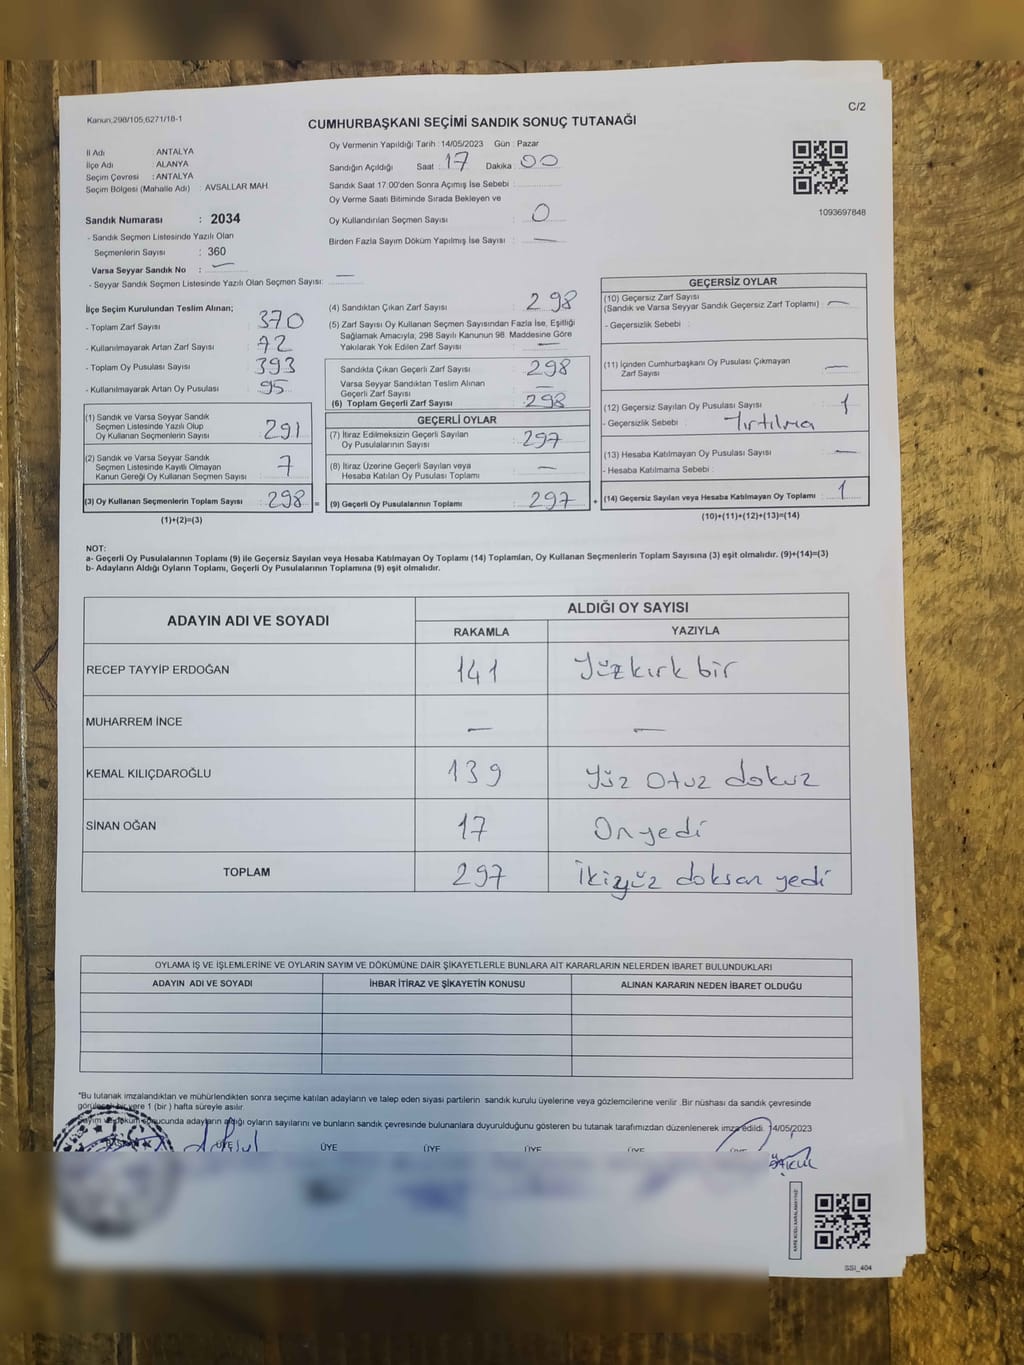 Kanun,298/105,6271/18-1
C/2
CUMHURBAŞKANI SEÇİMİ SANDIK SONUÇ TUTANAĞI
İl Adı : ANTALYA
İlçe Adı : ALANYA
Seçim Çevresi : ANTALYA
Seçim Bölgesi (Mahalle Adı) : AVSALLAR MAH.
Sandık Numarası : 2034
- Sandık Seçmen Listesinde Yazılı Olan
Seçmenlerin Sayısı : 360
Varsa Seyyar Sandık No : —
- Seyyar Sandık Seçmen Listesinde Yazılı Olan Seçmen Sayısı: —
Oy Vermenin Yapıldığı Tarih : 14/05/2023 Gün : Pazar
Sandığın Açıldığı Saat : 17 Dakika : 00
Sandık Saat 17:00'den Sonra Açımış İse Sebebi :
Oy Verme Saati Bitiminde Sırada Bekleyen ve
Oy Kullandırılan Seçmen Sayısı : 0
Birden Fazla Sayım Döküm Yapılmış İse Sayısı : —
1093697848
İlçe Seçim Kurulundan Teslim Alınan;
- Toplam Zarf Sayısı : 370
- Kullanılmayarak Artan Zarf Sayısı : 72
- Toplam Oy Pusulası Sayısı : 393
- Kullanılmayarak Artan Oy Pusulası : 95
(1) Sandık ve Varsa Seyyar Sandık
Seçmen Listesinde Yazılı Olup
Oy Kullanan Seçmenlerin Sayısı : 291
(2) Sandık ve Varsa Seyyar Sandık
Seçmen Listesinde Kayıtlı Olmayan
Kanun Gereği Oy Kullanan Seçmen Sayısı : 7
(3) Oy Kullanan Seçmenlerin Toplam Sayısı : 298 =
(1)+(2)=(3)
(4) Sandıktan Çıkan Zarf Sayısı : 298
(5) Zarf Sayısı Oy Kullanan Seçmen Sayısından Fazla İse, Eşitliği
Sağlamak Amacıyla, 298 Sayılı Kanunun 98. Maddesine Göre
Yakılarak Yok Edilen Zarf Sayısı : —
Sandıkta Çıkan Geçerli Zarf Sayısı : 298
Varsa Seyyar Sandıktan Teslim Alınan
Geçerli Zarf Sayısı : —
(6) Toplam Geçerli Zarf Sayısı : 298
GEÇERLİ OYLAR
(7) İtiraz Edilmeksizin Geçerli Sayılan
Oy Pusulalarının Sayısı : 297
(8) İtiraz Üzerine Geçerli Sayılan veya
Hesaba Katılan Oy Pusulası Toplamı : —
(9) Geçerli Oy Pusulalarının Toplamı : 297 +
GEÇERSİZ OYLAR
(10) Geçersiz Zarf Sayısı
(Sandık ve Varsa Seyyar Sandık Geçersiz Zarf Toplamı) : —
- Geçersizlik Sebebi :
(11) İçinden Cumhurbaşkanı Oy Pusulası Çıkmayan
Zarf Sayısı : —
(12) Geçersiz Sayılan Oy Pusulası Sayısı : 1
- Geçersizlik Sebebi : Yırtılma
(13) Hesaba Katılmayan Oy Pusulası Sayısı : —
- Hesaba Katılmama Sebebi :
(14) Geçersiz Sayılan veya Hesaba Katılmayan Oy Toplamı : 1
(10)+(11)+(12)+(13)=(14)
NOT:
a- Geçerli Oy Pusulalarının Toplamı (9) ile Geçersiz Sayılan veya Hesaba Katılmayan Oy Toplamı (14) Toplamları, Oy Kullanan Seçmenlerin Toplam Sayısına (3) eşit olmalıdır. (9)+(14)=(3)
b- Adayların Aldığı Oyların Toplamı, Geçerli Oy Pusulalarının Toplamına (9) eşit olmalıdır.
ADAYIN ADI VE SOYADI
ALDIĞI OY SAYISI
RAKAMLA YAZIYLA
RECEP TAYYİP ERDOĞAN 141 Yüzkırk bir
MUHARREM İNCE — —
KEMAL KILIÇDAROĞLU 139 Yüz Otuz dokuz
SİNAN OĞAN 17 Onyedi
TOPLAM 297 İkiyüz doksan yedi
OYLAMA İŞ VE İŞLEMLERİNE VE OYLARIN SAYIM VE DÖKÜMÜNE DAİR ŞİKAYETLERLE BUNLARA AİT KARARLARIN NELERDEN İBARET BULUNDUKLARI
ADAYIN ADI VE SOYADI İHBAR İTİRAZ VE ŞİKAYETİN KONUSU ALINAN KARARIN NEDEN İBARET OLDUĞU
"Bu tutanak imzalandıktan ve mühürlendikten sonra seçime katılan adayların ve talep eden siyasi partilerin sandık kurulu üyelerine veya gözlemcilerine verilir .Bir nüshası da sandık çevresinde
görülecek bir yere 1 (bir ) hafta süreyle asılır.
Sayım ve döküm sonucunda adayların aldığı oyların sayılarını ve bunların sandık çevresinde bulunanlara duyurulduğunu gösteren bu tutanak tarafımızdan düzenlenerek imza edildi. 14/05/2023
BAŞKAN ÜYE ÜYE ÜYE ÜYE ÜYE
SSİ_404